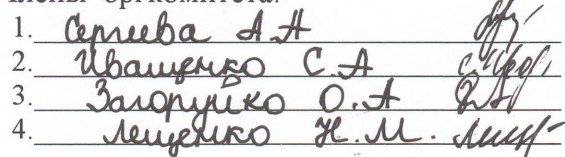 Члены оргкомитета:
1. Сергеева А.А
2. Иващенко С.А
3. Загоруйко О.А
4. Лещенко Н.М.